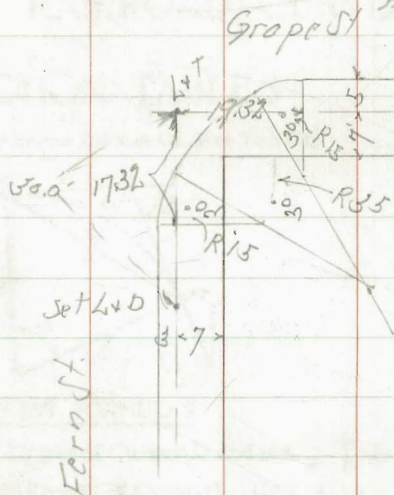 Grape St
L&T
5
19.32
30°
R15
7
30.0
17.32
30°
R35
30°
R15
Set L&D
3 7
Fern St.